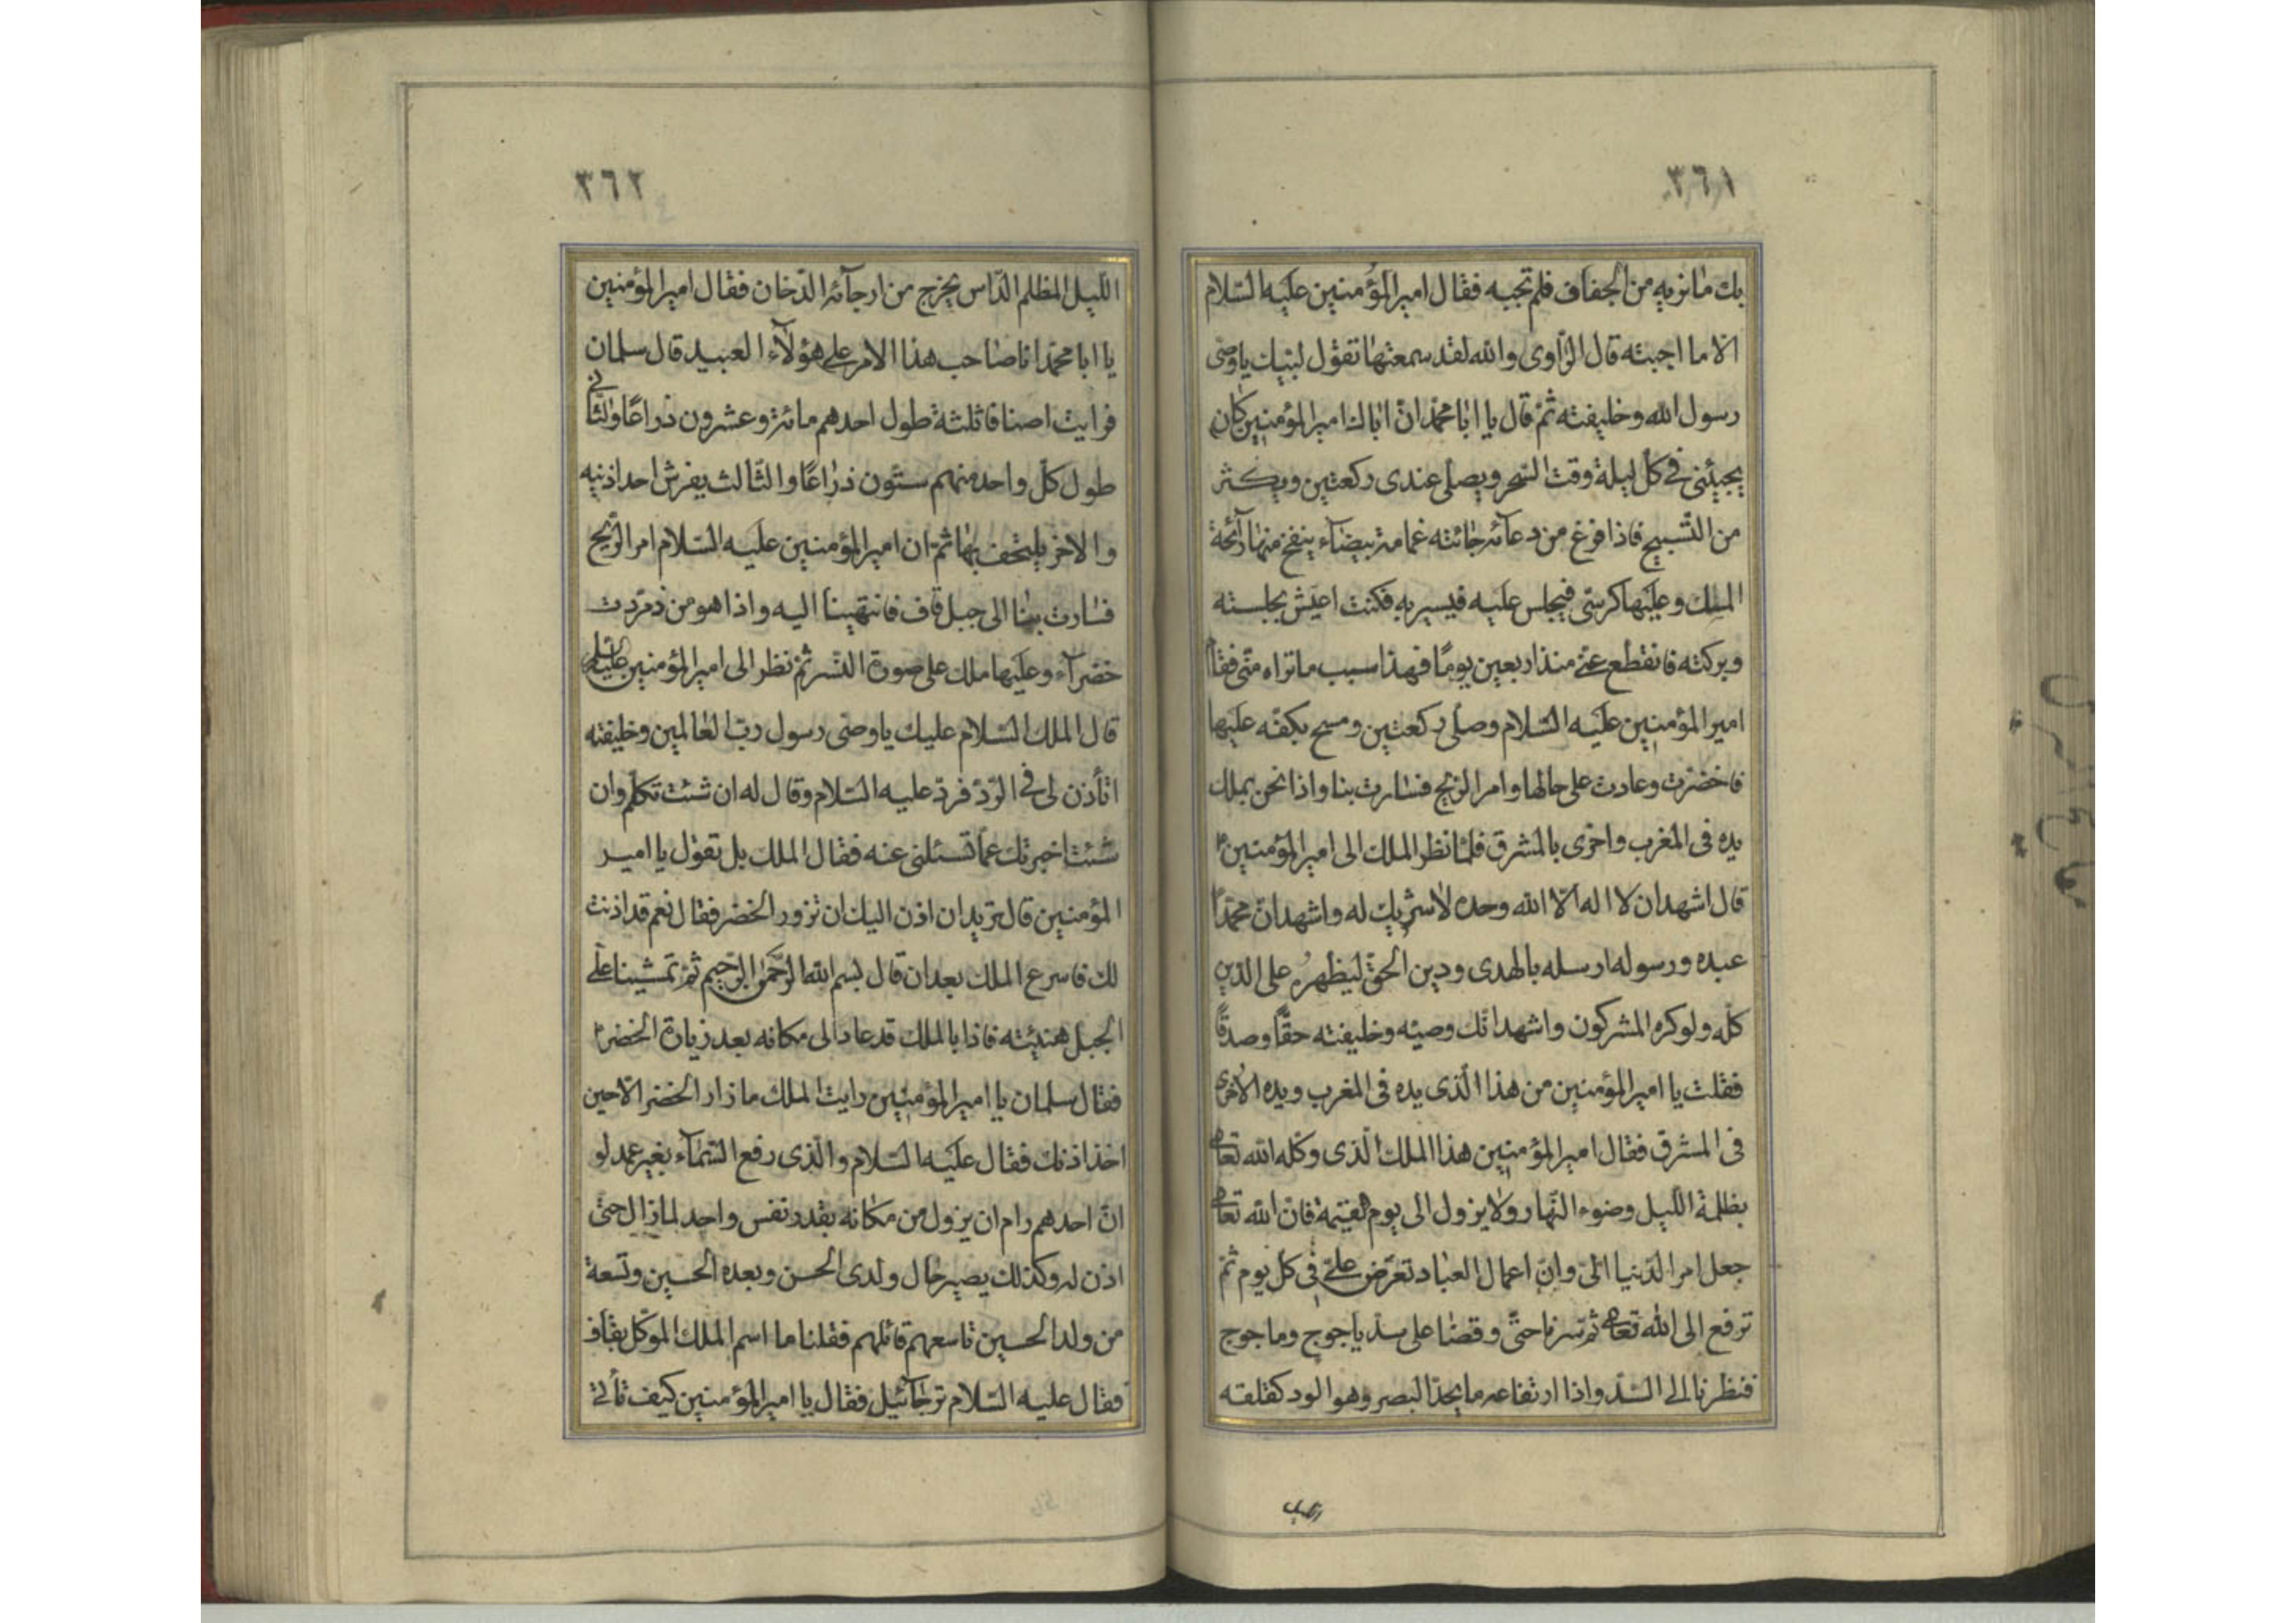 ٣٦١
بك مانريه من الجفاف فلم تجبه فقال اميرالمؤمنين عليه السّلام
الا ما اجبته قال الرّاوى والله لقد سمعتها تقول لبّيك ياوصى
رسول الله وخليفته ثمّ قال يا ابا محمّد انّ اباك اميرالمؤمنين كان
يجيئنى فى كلّ ليلة وقت السّحر ويصلّى عندى ركعتين ويكثر
من التّسبيح فاذا فرغ من دعآئه جائته غمامة بيضآء ينفح منها رآئحة
المسك وعليها كرسىّ فيجلس عليه فيسير به فكنت اعيش بجلسته
وبركته فانقطع عنّى منذ اربعين يومًا فهذا سبب ماتراه منّى فقال
اميرالمؤمنين عليه السّلام وصلّى ركعتين ومسح بكفّه عليها
فاخضرّت وعادت على حالها وامر الرّيح فسارت بنا واذا نحن بملك
يده فى المغرب واخرى بالمشرق فلمّا نظر الملك الى اميرالمؤمنين ٢
قال اشهد ان لا اله الّا الله وحده لاشريك له واشهد انّ محمّدًا
عبده ورسوله ارسله بالهدى ودين الحقّ ليظهره على الدّين
كلّه ولوكره المشركون واشهد انّك وصيّه وخليفته حقًّا وصدقًا
فقلت يا اميرالمؤمنين من هذا الّذى يده فى المغرب ويده الاخرى
فى المشرق فقال اميرالمؤمنين هذا الملك الّذى وكّله الله تعالى
بظلمة اللّيل وضوء النّهار ولايزول الى يوم القيمة فانّ الله تعالى
جعل امر الدّنيا الىّ وانّ اعمال العباد تعرض علىّ فى كلّ يوم ثمّ
ترفع الى الله تعالى ثمّ سرنا حتّى وقصنا على سدّ ياجوج وماجوج
فنظرنا الى السّدّ واذا ارتفاعه مايحدّ البصر وهو الود كقلقه
اللّيل
٣٦٢
اللّيل المظلم الدّاس يخرج من ارجآئه الدّخان فقال اميرالمؤمنين
يا ابا محمّد انا صاحب هذا الامر على هؤلآء العبيد قال سلمان
فرايت اصنافا ثلثة طول احدهم مائة وعشرون ذراعًا والثّانى
طول كلّ واحد منهم ستّون ذراعًا والثّالث يفرش احد اذنيه
والاخر يلتحف بها ثمّ ان اميرالمؤمنين عليه السّلام امر الرّيح
فسارت بنا الى جبل قاف فانتهينا اليه واذا هو من زمرّدت
خضرآء وعليها ملك على صورة النّسر ثمّ نظر الى اميرالمؤمنين عليه السلم
قال الملك السّلام عليك ياوصى رسول ربّ العالمين وخليفته
اتأذن لى فى الرّدّ فردّ عليه السّلام وقال له ان شئت تكلّم وان
شئت اخبرتك عمّا تسئلنى عنه فقال الملك بل تقول يا امير
المؤمنين قال تريد ان اذن اليك ان تزور الخضر فقال نعم قد اذنت
لك فاسرع الملك بعد ان قال بسم الله الرّحمن الرّحيم ثمّ تمشّينا على
الجبل هنيئته فاذا بالملك قد عاد الى مكانه بعد زيارة الخضر ٢
فقال سلمان يا اميرالمؤمنين رايت الملك مازار الخضر الّا حين
اخذ اذنك فقال عليه السّلام والّذى رفع السّمآء بغير عمد لو
انّ احدهم رام ان يزول من مكانه بقدر نفس واحد لمازال حتّى
اذن له وكذلك يصير حال ولدى الحسن وبعده الحسين وتسعة
من ولد الحسين تاسعهم قائمهم فقلنا ما اسم الملك الموكّل بقاف
فقال عليه السّلام ترجآئيل فقال يا اميرالمؤمنين كيف تأتى